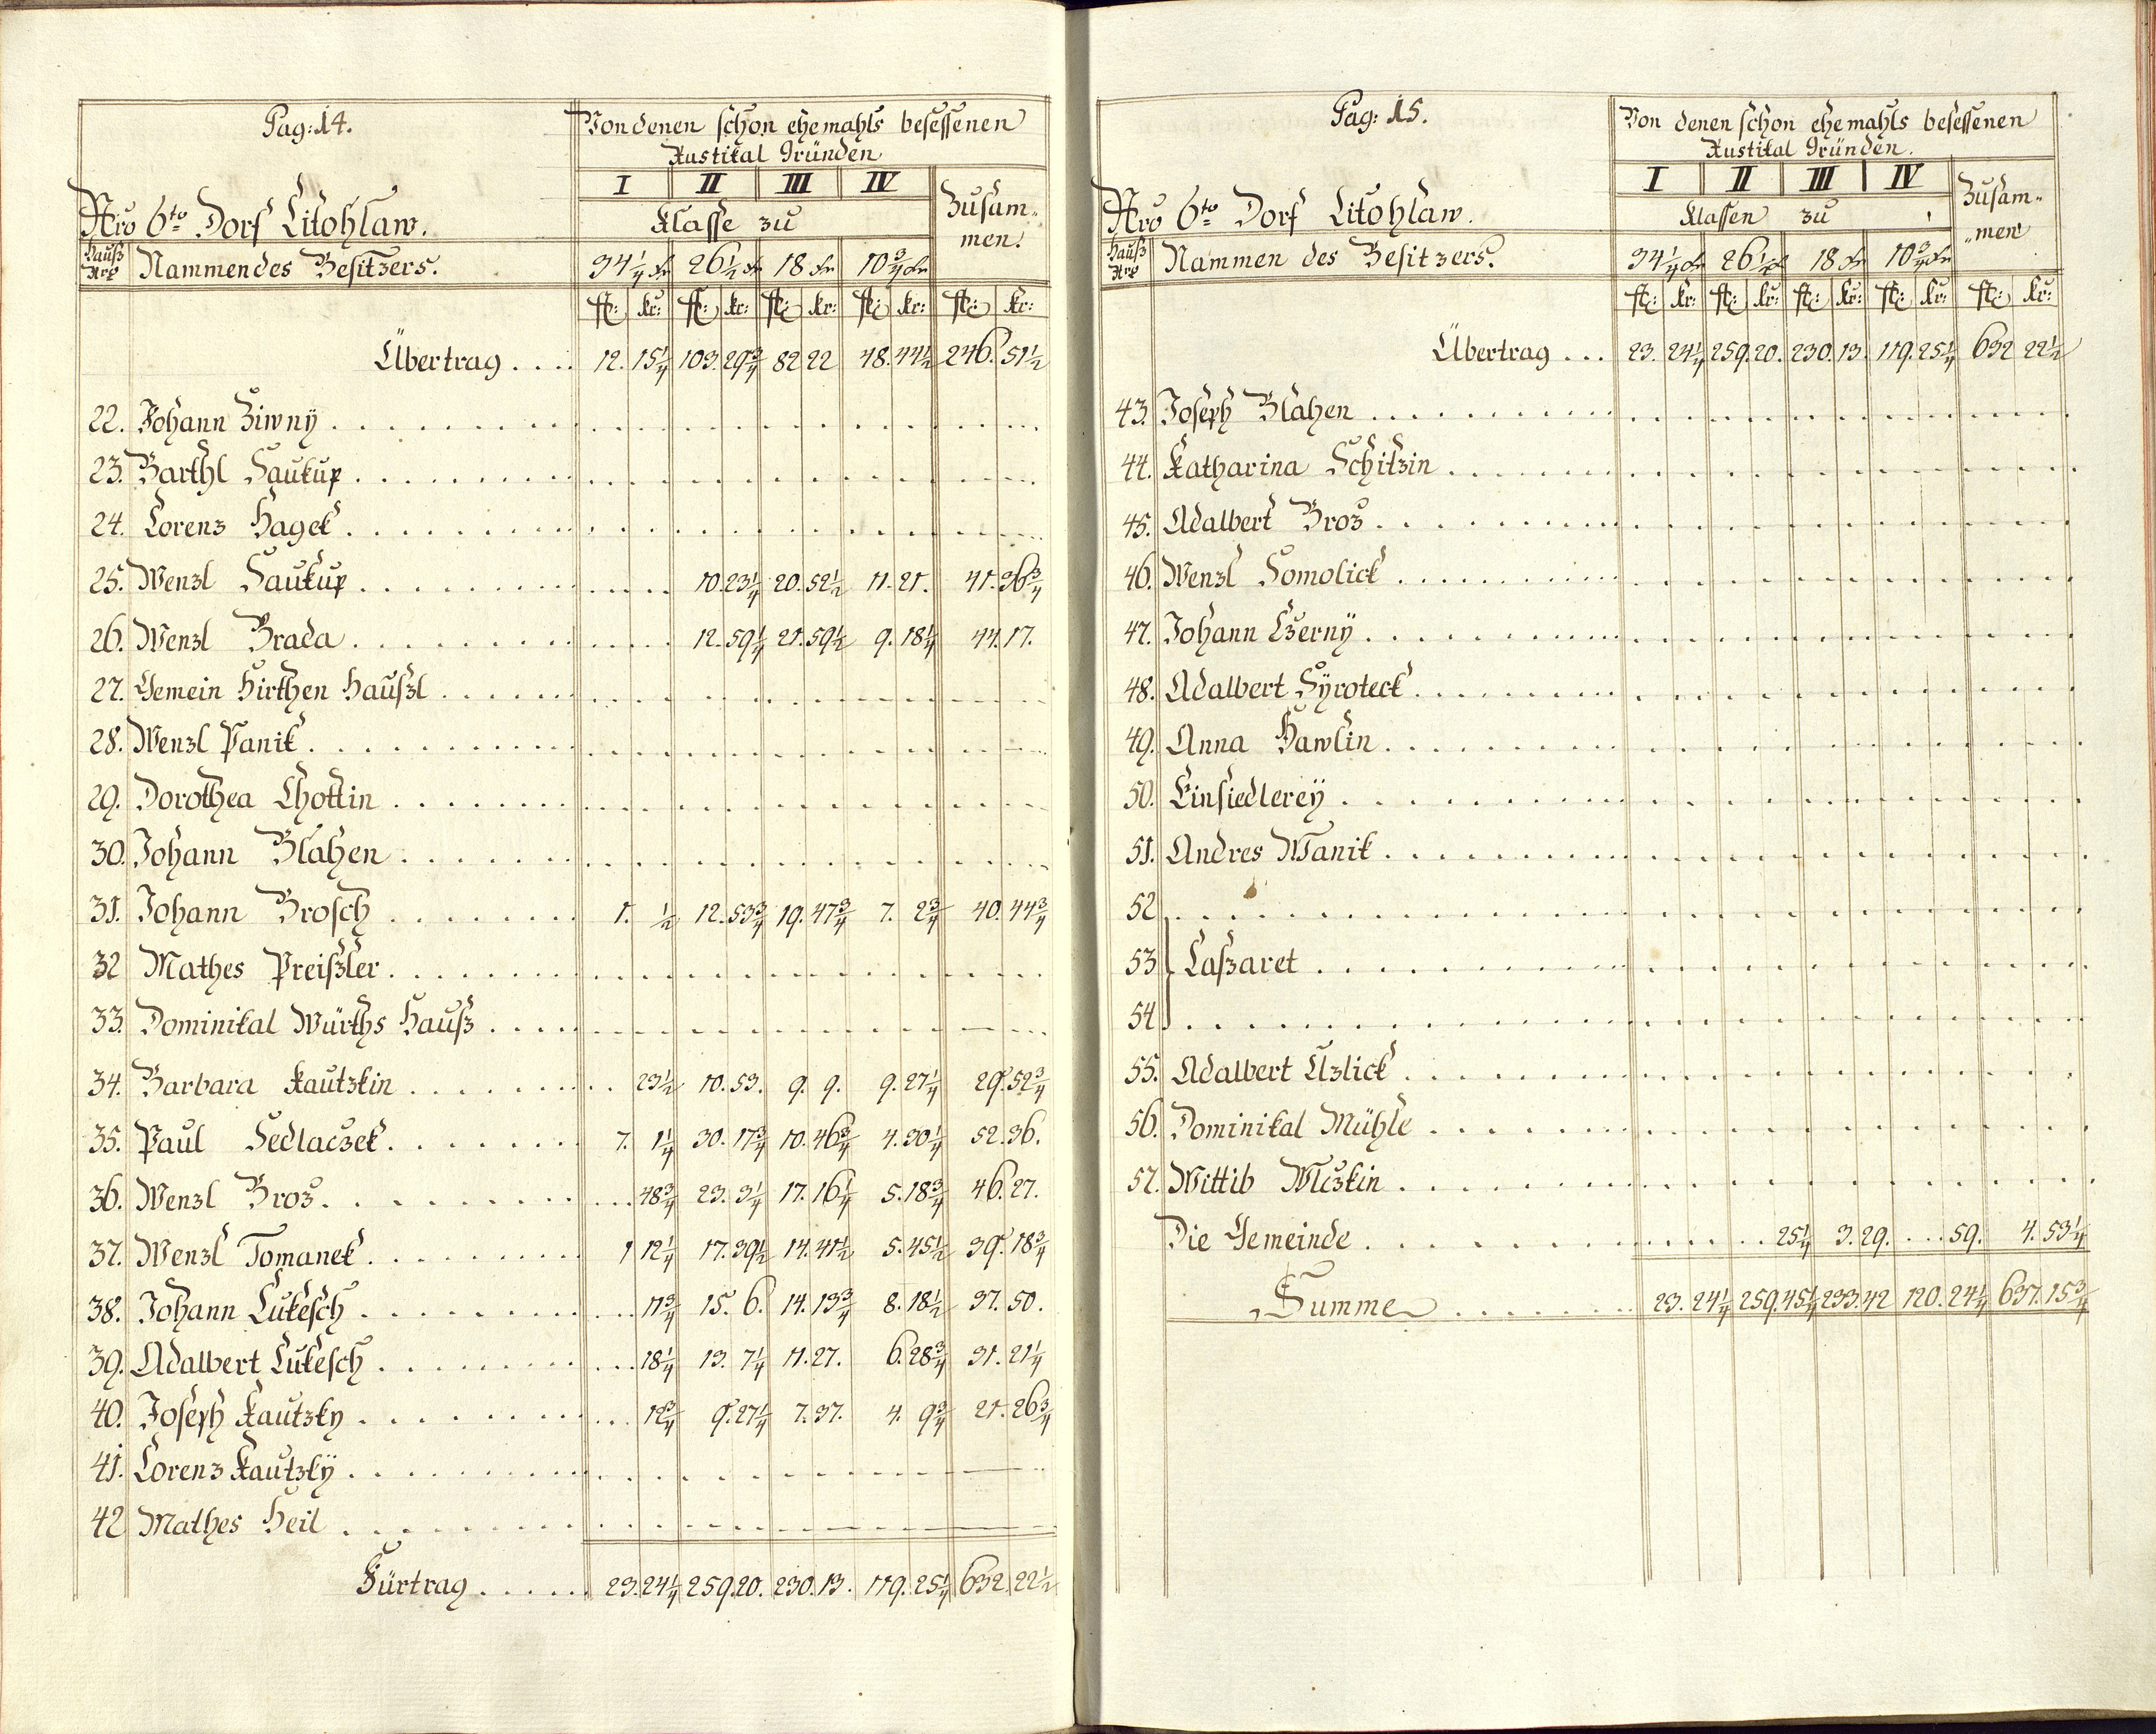 Pag: 14.
Von denen schon ehemahls besessenen
Rustikal Gründen
I II III IV Zusam-
Nro 6to Dorf Litohlaw. Klasse zu men.
Hauß Nro Nammen des Besitzers. 34 1/4 kr 26 1/2 kr 18 kr 10 3/4 kr
fl: kr: fl: kr: fl: kr: fl: kr: fl: kr:
Übertrag .... 12. 15 1/4 103. 29 3/4 82 22 48. 44 1/2 246. 51 1/2
22. Johann Ziwnÿ
23. Barthl Saukup
24. Lorenz Hagek
25. Wenzl Saukup 10. 23 1/4 20. 52 1/2 11. 21. 41. 36 3/4
26. Wenzl Brada 12. 59 1/4 21. 59 1/2 9. 18 1/4 44. 17.
27. Gemein Hirthen Haußl
28. Wenzl Panik
29. Dorothea Chottin
30. Johann Blahen
31. Johann Brosch 1. 1/2 12. 53 3/4 19. 47 3/4 7. 2 3/4 40. 44 3/4
32 Mathes Preißler
33. Dominikal Würths Hauß
34. Barbara Kautzkin 23 1/2 10. 53. 9. 9. 9. 27 1/4 29. 52 3/4
35. Paul Sedlaczek 7. 1 1/4 30. 17 3/4 10. 46 3/4 4. 30 1/4 52. 36.
36. Wenzl Broz 48 3/4 23. 3 1/4 17. 16 1/4 5. 18 3/4 46. 27.
37. Wenzl Tomanek 1 12 1/4 17. 39 1/2 14. 41 1/2 5. 45 1/2 39. 18 3/4
38. Johann Lukesch 11 3/4 15. 6. 14. 13 3/4 8. 18 1/2 37. 50.
39. Adalbert Lukesch 18 1/4 13. 7 1/4 11. 27. 6. 28 3/4 31. 21 1/4
40. Joseph Kautzky 12 3/4 9. 27 1/4 7. 37. 4. 9 3/4 21. 26 3/4
41. Lorenz Kautzkÿ
42 Mathes Heil
Fürtrag ..... 23. 24 1/4 259. 20. 230. 13. 119. 25 1/4 632. 22 1/2
Pag: 15.
Von denen schon ehemahls besessenen
Rustikal Gründen.
I II III IV Zusam-
Nro 6to Dorf Litohlaw. Klassen zu „men
Hauß Nro Nammen des Besitzers. 34 1/4 kr 26 1/2 kr 18 kr 10 3/4 kr
fl: kr: fl: kr: fl: kr: fl: kr: fl: kr:
Übertrag ... 23. 24 1/4 259. 20. 230. 13. 119. 25 1/4 632 22 1/2
43. Joseph Blahen
44. Katharina Schitzin
45. Adalbert Broz
46. Wenzl Homolick
47. Johann Czernÿ
48. Adalbert Sÿroteck
49. Anna Hawlin
50. Einsiedlereÿ
51. Andres Wanik
52
53 Laßaret
54
55. Adalbert Uzlick
56. Dominikal Mühle
57. Wittib Wlczkin
Die Gemeinde 25 1/4 3. 29. 59. 4. 53 1/4
Summe 23. 24 1/4 259. 45 1/4 233. 42 120. 24 1/4 637. 15 3/4